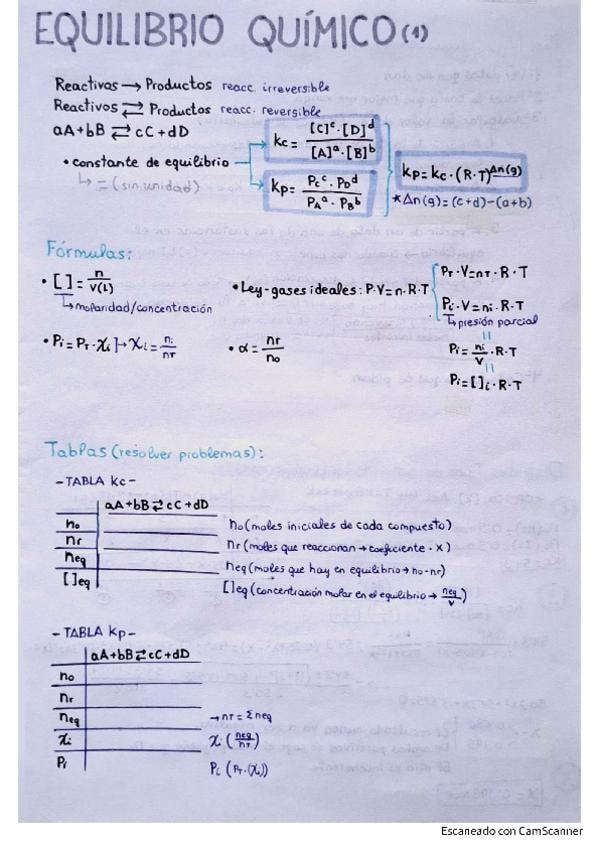 EQUILIBRIO QUÍMICO (1)
Reactivos → Productos reacc. irreversible
Reactivos ⇄ Productos reacc. reversible
aA+bB ⇄ cC+dD
• constante de equilibrio
↳ = (sin unidad)
Kc = [C]^c · [D]^d / [A]^a · [B]^b
Kp = Pc^c · PD^d / PA^a · PB^b
Kp = Kc · (R·T)^Δn(g)
*Δn(g) = (c+d)-(a+b)
Fórmulas:
• [ ] = n / V(L)
↳ molaridad/concentración
• Ley-gases ideales: P·V=n·R·T
PT·V=nT·R·T
Pi·V=ni·R·T
↳ presión parcial
Pi = ni/V · R·T
Pi = [ ]i · R·T
• Pi = PT·Xi ]→ Xi = ni/nT
• α = nr/no
Tablas (resolver problemas):
-TABLA Kc-
aA+bB ⇄ cC+dD
no
nr
neq
[ ]eq
no (moles iniciales de cada compuesto)
nr (moles que reaccionan → coeficiente · x)
neq (moles que hay en equilibrio → no-nr)
[ ]eq (concentración molar en el equilibrio → neq/V)
-TABLA Kp-
aA+bB ⇄ cC+dD
no
nr
neq
Xi
Pi
→ nT = Σneq
Xi (neq/nT)
Pi (PT·(Xi))
Escaneado con CamScanner